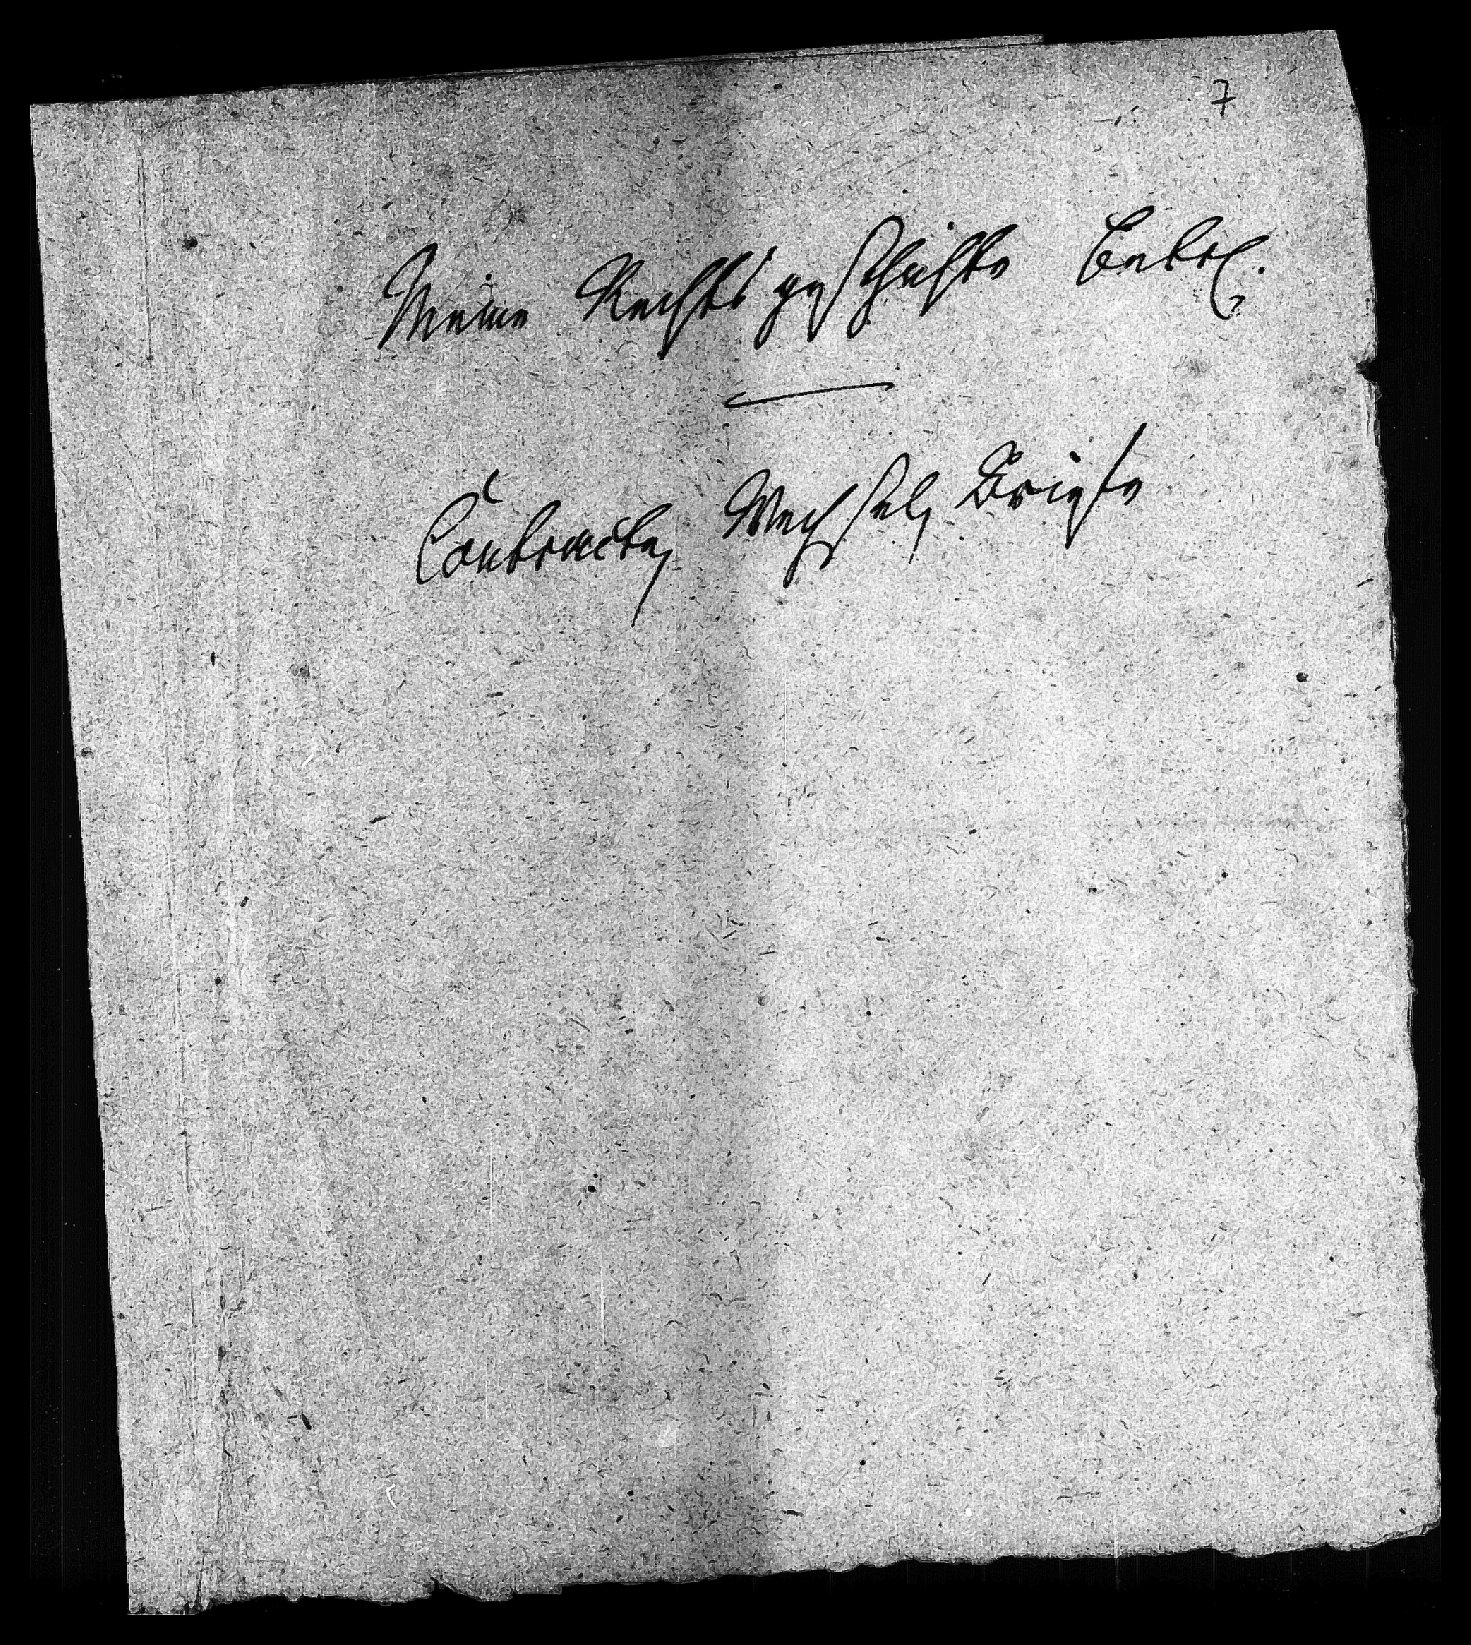 7
Meine Rechts geschichte betr.
Contracte, Wechsel, Briefe